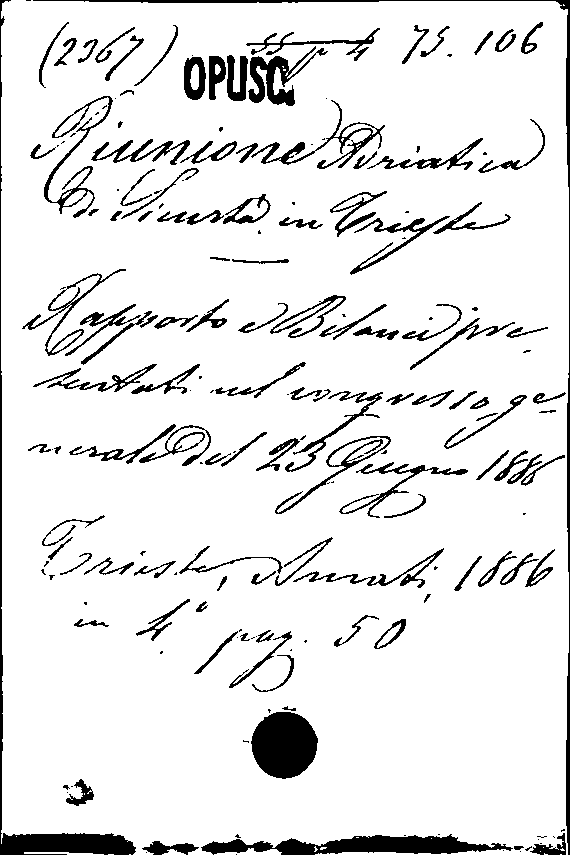 (2367) 75. 106
OPUSC.
Riunione Adriatica
di Sicurtà in Trieste
Rapporto e Bilanci pre-
sentati nel congresso ge-
nerale del 23 Giugno 1886
Trieste, Amati, 1886
in 4.° pag. 50